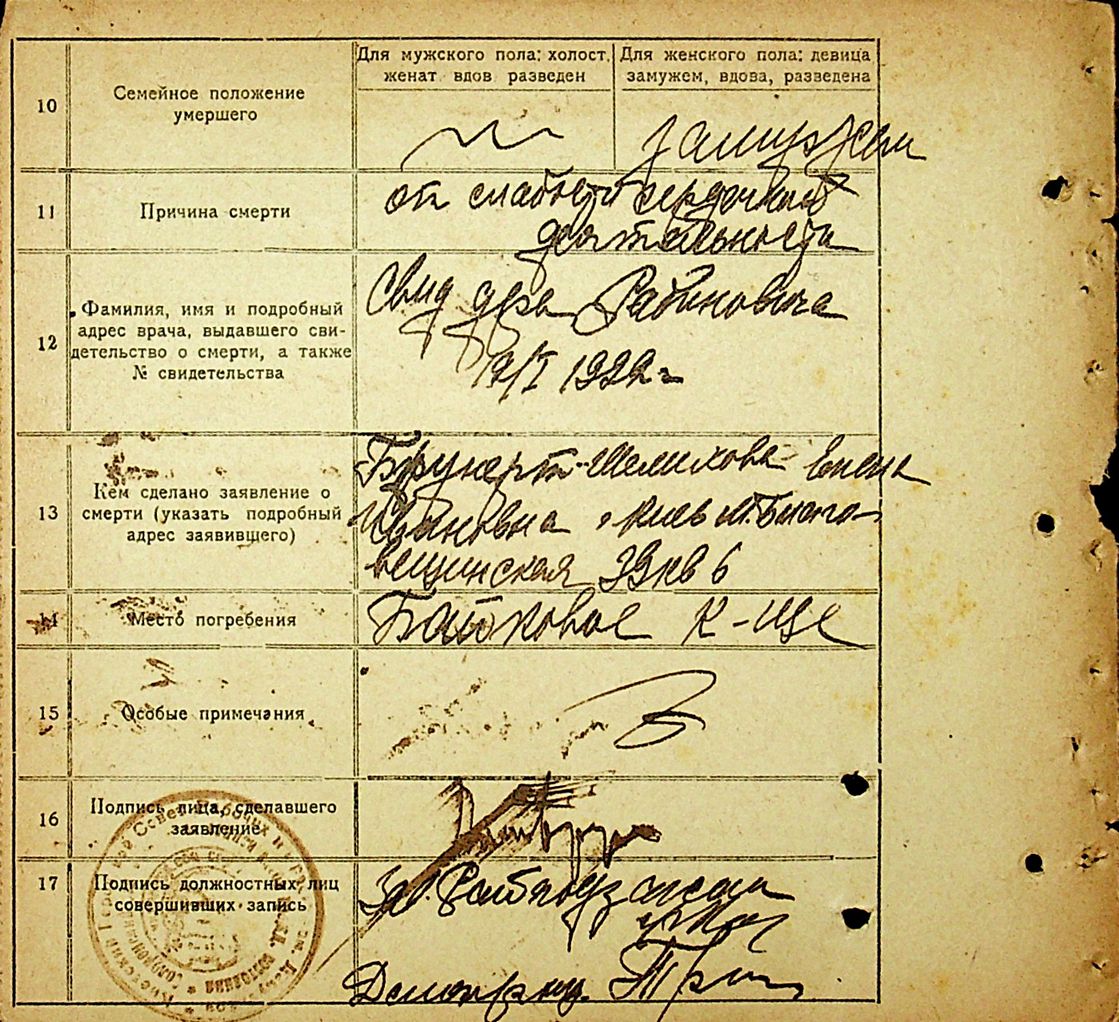 10
Семейное положение
умершего
Для мужского пола: холост,
женат вдов разведен
Для женского пола: девица
замужем, вдова, разведена
замужем
11
Причина смерти
от слабости сердечной
деятельности
12
Фамилия, имя и подробный
адрес врача, выдавшего сви-
детельство о смерти, а также
№ свидетельства
Свид д-ра Рабиновича
1922 г
13
Кем сделано заявление о
смерти (указать подробный
адрес заявившего)
Брунерт-Шелихова Елена
Ивановна Киев М. Благо-
вещинская кв 6
14
Место погребения
Байковое к-ще
15
Особые примечания
16
Подпись лица, сделавшего
заявление
17
Подпись должностных лиц
совершивших запись
Зав.
Делопр